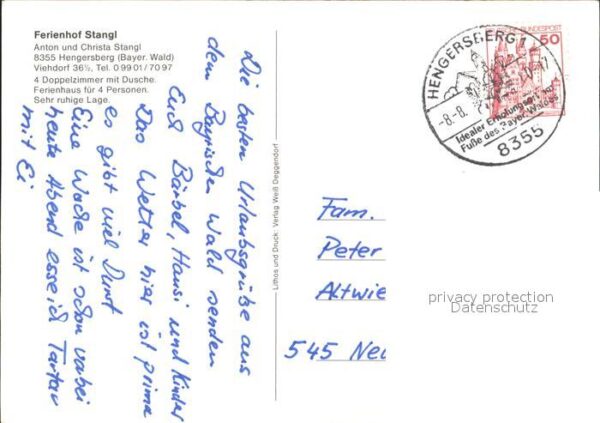 Ferienhof Stangl
Anton und Christa Stangl
8355 Hengersberg (Bayer. Wald)
Viehdorf 36½, Tel. 0 99 01 / 70 97
4 Doppelzimmer mit Dusche.
Ferienhaus für 4 Personen.
Sehr ruhige Lage.
Die besten Urlaubsgrüße aus
dem Bayrischen Wald senden
Euch Bärbel, Hansi und Kinder
Das Wetter hier ist prima
es gibt viel Durst
Eine Woche ist schon vorbei
heute Abend esse ich Tartar
mit Ei
Lithos und Druck: Verlag Weiß Deggendorf
HENGERSBERG 1
-8.-8.
Idealer Erholungsort am
Fuße des Bayer. Waldes
8355
BUNDESPOST
50
Fam.
Peter
Altwie
545 Neu
privacy protection
Datenschutz